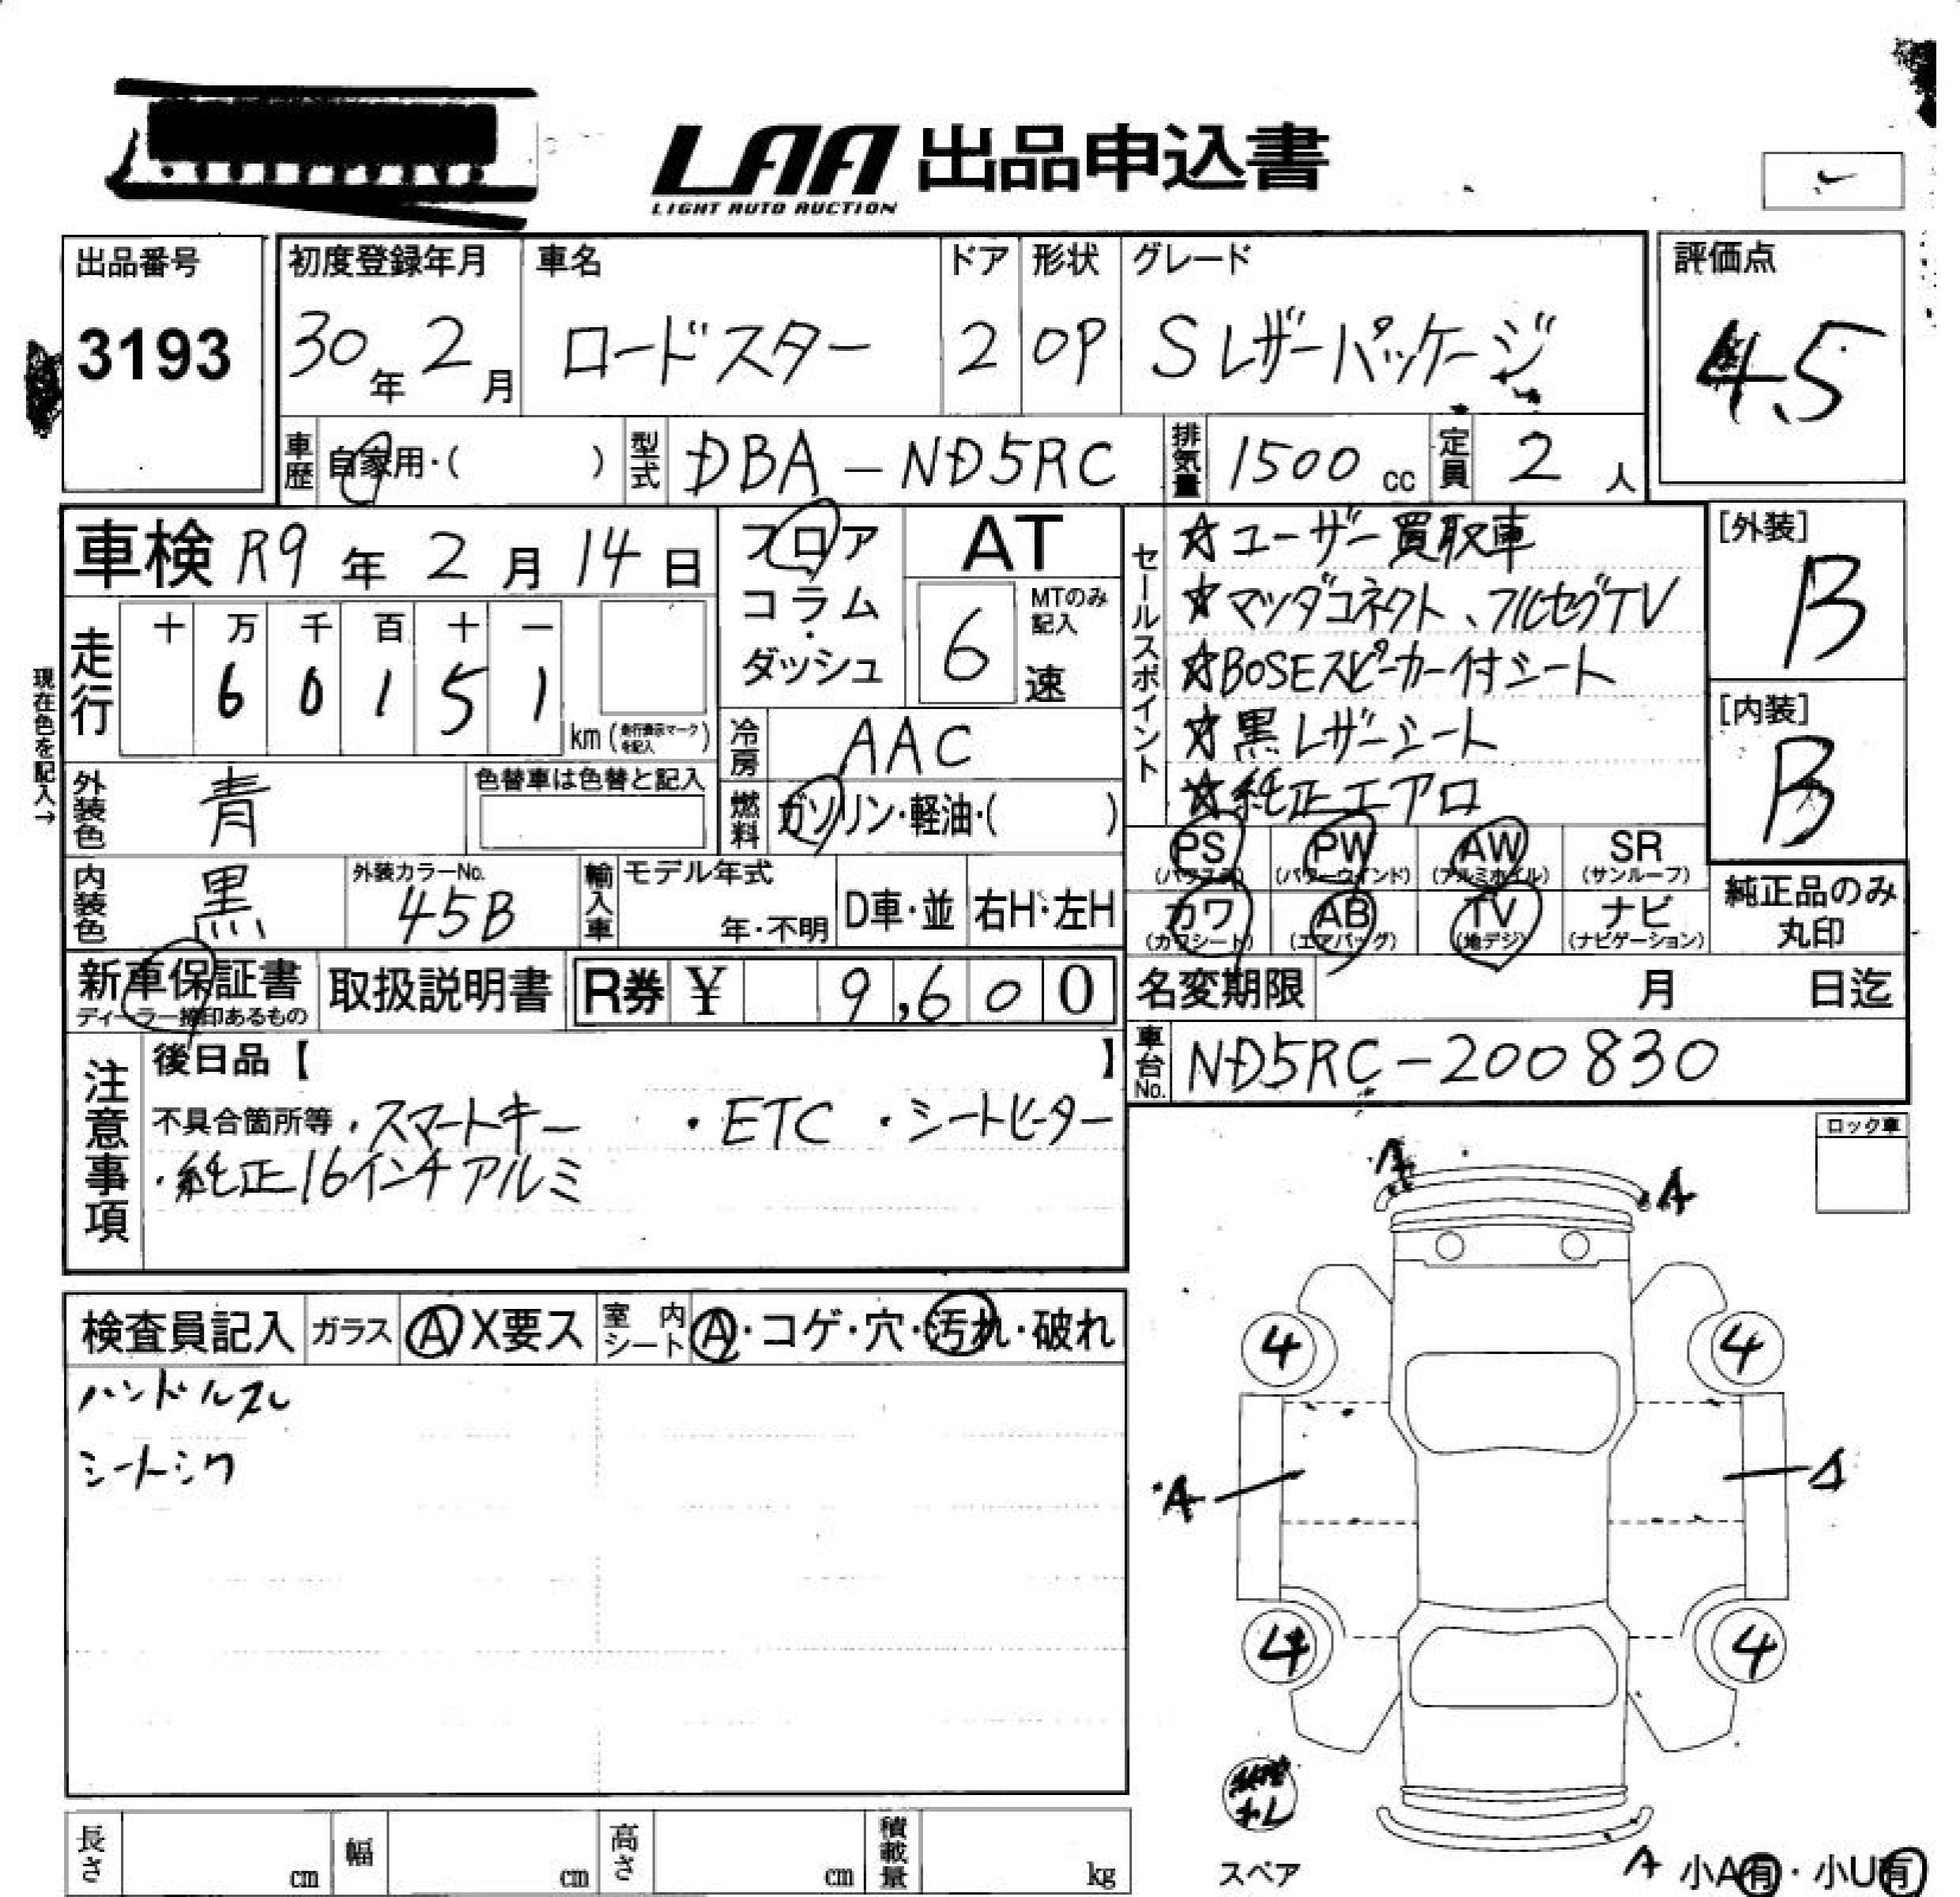 LAA 出品申込書
LIGHT AUTO AUCTION
出品番号
3193
初度登録年月
30年 2月
車名
ロードスター
ドア
2
形状
OP
グレード
Sレザーパッケージ
評価点
4.5
車歴 自家用・( )
型式 DBA-ND5RC
排気量 1500 cc
定員 2 人
車検 R9年 2月 14日
走行
十 万 千 百 十 一
6 0 1 5 1
km (走行表示マークを記入)
現在色を記入→
外装色 青
色替車は色替と記入
内装色 黒
外装カラーNo.
45B
フロア
コラム
・
ダッシュ
AT
MTのみ記入
6 速
冷房 AAC
燃料 ガソリン・軽油・( )
輸入車
モデル年式
年・不明
D車・並
右H・左H
セールスポイント
☆ユーザー買取車
☆マツダコネクト、フルセグTV
☆BOSEスピーカー付シート
☆黒レザーシート
☆純正エアロ
[外装]
B
[内装]
B
PS (パワステ)
PW (パワーウインド)
AW (アルミホイル)
SR (サンルーフ)
カワ (カワシート)
AB (エアバッグ)
TV (地デジ)
ナビ (ナビゲーション)
純正品のみ
丸印
新車保証書
ディーラー捺印あるもの
取扱説明書
R券 ¥ 9,600
名変期限 月 日迄
車台No. ND5RC-200830
注意事項
後日品【 】
不具合箇所等 ・スマートキー ・ETC ・シートヒーター
・純正16インチアルミ
ロック車
検査員記入
ガラス A X要ス
室内シート A・コゲ・穴・汚れ・破れ
ハンドルスレ
シートシワ
A
A
4
4
A
A
4
4
スペア
A
小A有・小U有
長さ cm
幅 cm
高さ cm
積載量 kg